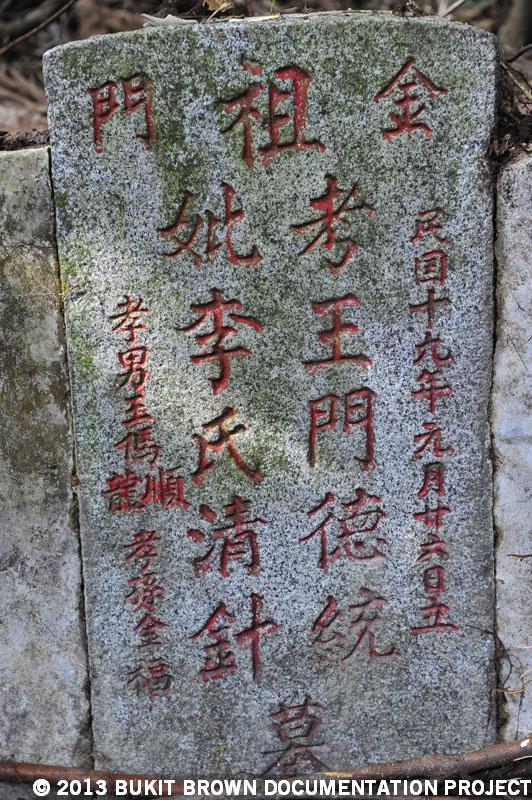 金祖門
民国十九年元月廿六日立
考王門德統
妣李氏清針
墓
孝男王傌順龍 孝孫金福
© 2013 BUKIT BROWN DOCUMENTATION PROJECT